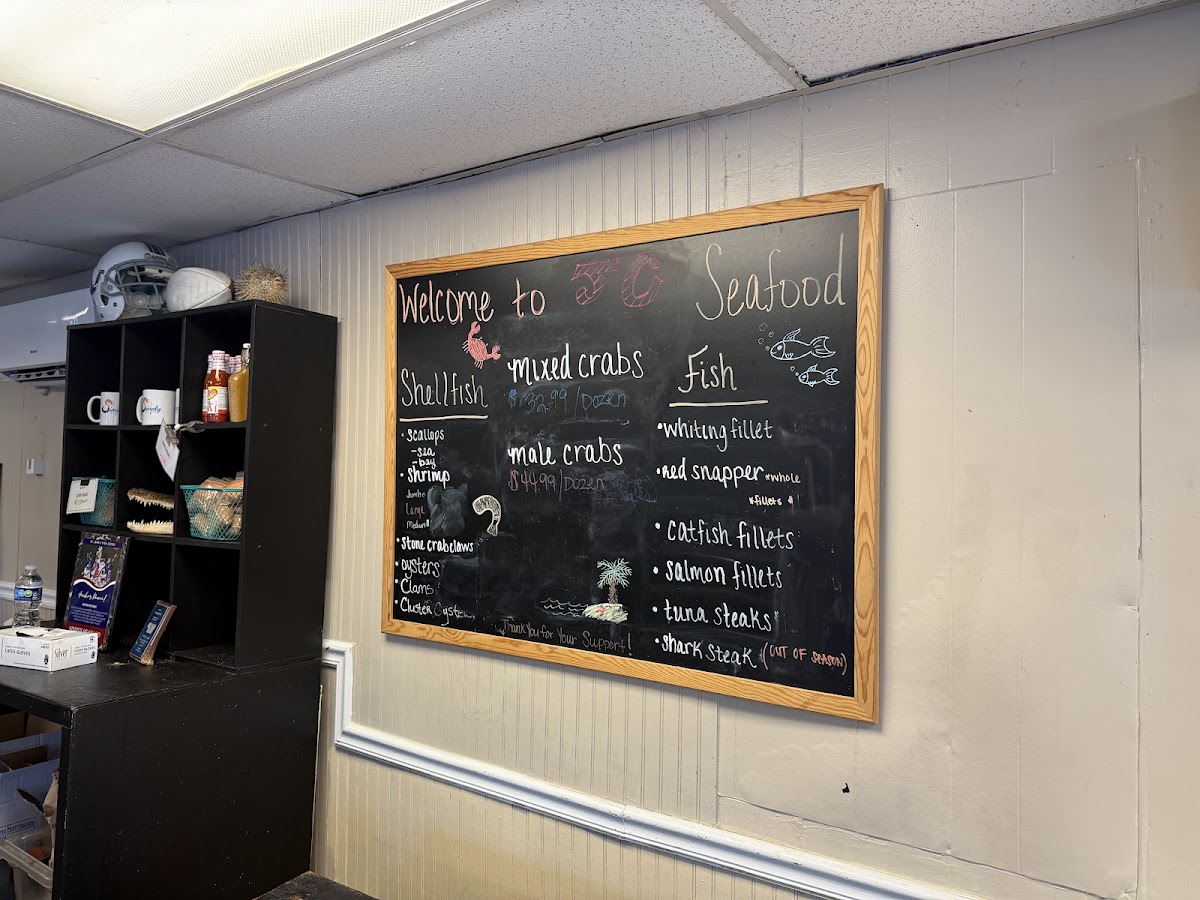 Welcome to JC Seafood
Shellfish
• Scallops
- sea
- bay
• Shrimp
Jumbo
Large
Medium
• Stone crab claws
• oysters
• Clams
• Cluster Oysters
mixed crabs
$32.99/Dozen
male crabs
$44.99/Dozen
Thank You for Your Support!
Fish
• whiting fillet
• Red snapper *whole
*fillets
• catfish fillets
• salmon fillets
• tuna steaks
• shark steak (OUT OF SEASON)
Simply
LATEX GLOVES